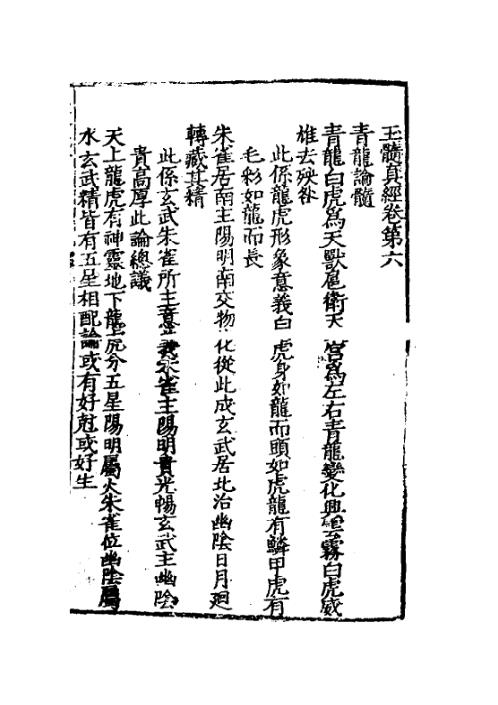 玉髓真經卷第六
青龍論髓
青龍白虎爲天獸扈衛天宫爲左右青龍變化興雲霧白虎威
雄去殃咎
此係龍虎形象意義白虎身如龍而頭如虎龍有鱗甲虎有
毛彩如龍而長
朱雀居南主陽明南交物化從此成玄武居北治幽陰日月廻
轉藏其精
此係玄武朱雀所主意義朱雀主陽明貴光暢玄武主幽陰
貴高厚此論總議
天上龍虎有神靈地下龍虎分五星陽明屬火朱雀位幽陰屬
水玄武精皆有五星相配論或有好尅或好生